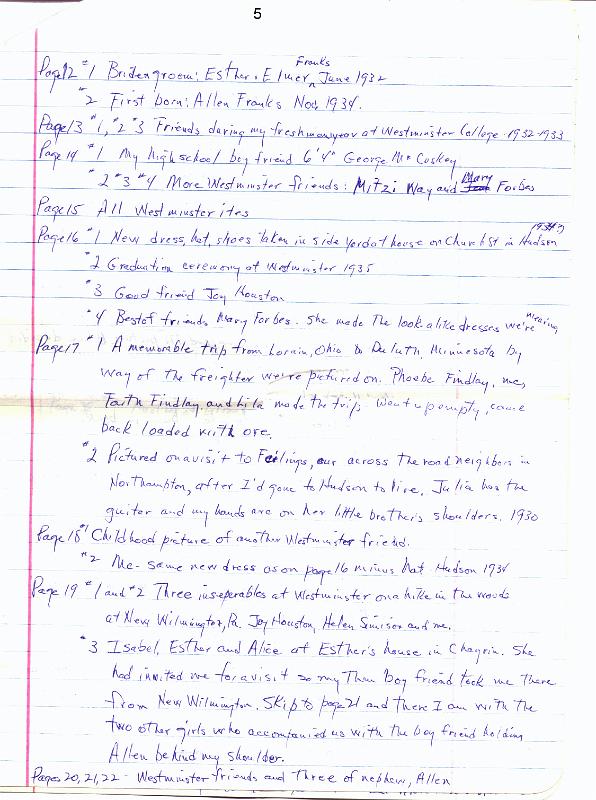 5
Page 12 #1 Briden groom: Esther & Elmer Franks June 1932
#2 First born: Allen Franks Nov. 1934.
Page 13 #1, #2 #3 Friends during my freshman year at Westminster College 1932-1933
Page 14 #1 My high school boy friend 6'4" George McCoskey
#2 #3 #4 More Westminster friends: Mitzi Way and Mary Forbes
Page 15 All Westminsterites
Page 16 #1 New dress, hat, shoes taken in side yard at house on Church St in Hudson 1934?
#2 Graduation ceremony at Westminster 1935
#3 Good friend Joy Houston
#4 Best of friends Mary Forbes. She made the look alike dresses we're wearing
Page 17 #1 A memorable trip from Lorain, Ohio to Duluth, Minnesota by
way of the freighter we're pictured on. Phoebe Findlay, me,
Faith Findlay and Lila made the trip. Went up empty, came
back loaded with ore.
#2 Pictured on a visit to Feilings, our across the road neighbors in
Northampton, after I'd gone to Hudson to live. Julia has the
guiter and my hands are on her little brother's shoulders. 1930
Page 18 #1 Childhood picture of another Westminster friend.
#2 Me - same new dress as on page 16 minus hat Hudson 1934
Page 19 #1 and #2 Three inseperables at Westminster on a hike in the woods
at New Wilmington, Pa. Joy Houston, Helen and me.
#3 Isabel, Esther and Alice at Esther's house in Chagrin. She
had invited me for a visit so my then boy friend took me there
from New Wilmington. Skip to page 21 and there I am with the
two other girls who accompanied us with the boy friend holding
Allen behind my shoulder.
Pages 20, 21, 22 - Westminster friends and three of nephew, Allen